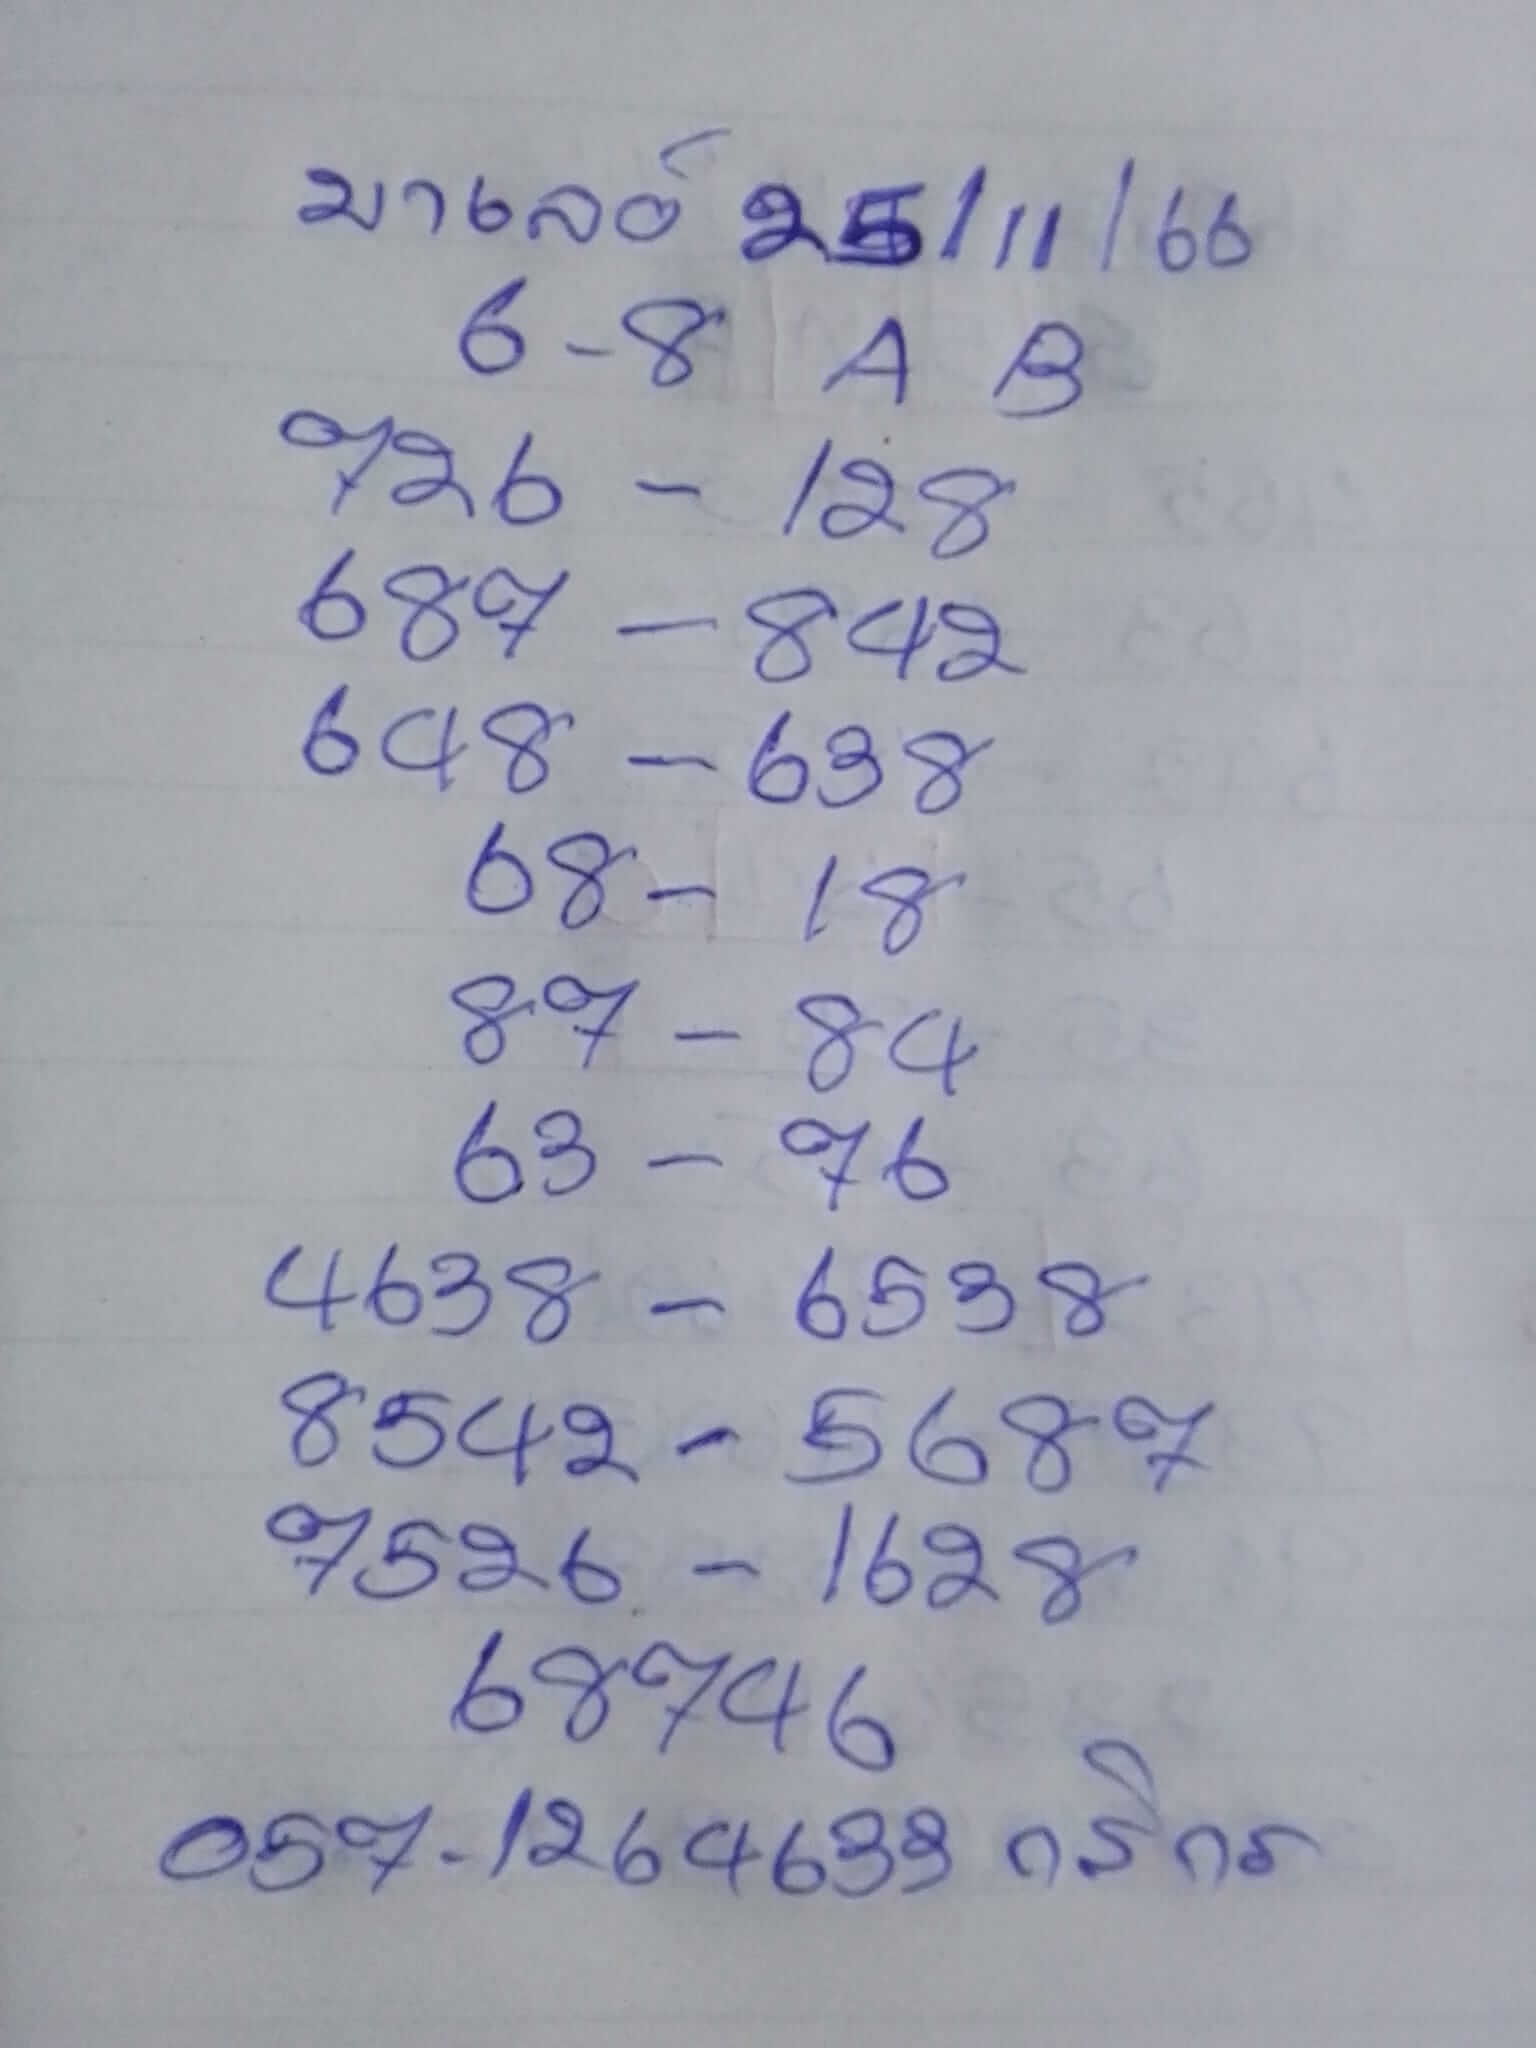 มาเลย์ 25/11/66
6-8 A B
726 - 128
687 - 842
648 - 638
68 - 18
87 - 84
63 - 76
4638 - 6538
8542 - 5687
7526 - 1628
68746
057-1264633 กสิกร